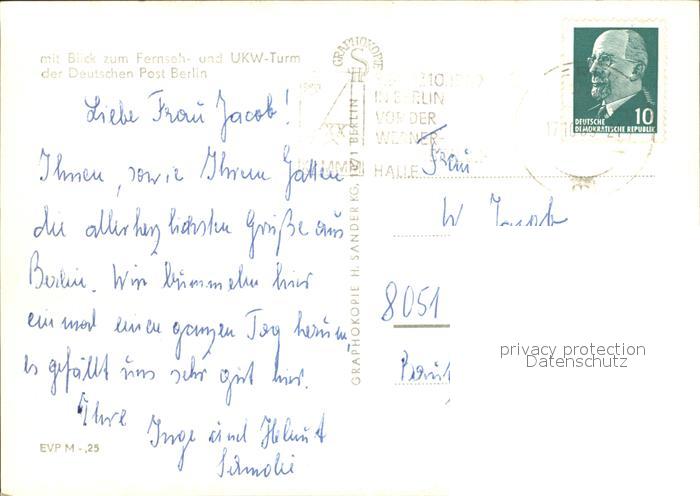 mit Blick zum Fernseh- und UKW-Turm
der Deutschen Post Berlin
Liebe Frau Jacob!
Ihnen, sowie Ihrem Gatten
die allerherzlichsten Grüße aus
Berlin. Wir bummeln hier
einmal einen ganzen Tag herum,
es gefällt uns sehr gut hier.
Ihre
Inge und Helmut
EVP M -,25
GRAPHOKOPIE
GRAPHOKOPIE H. SANDER KG, 1071 BERLIN
IN BERLIN
VOR DER
WERNER-
HALLE
10
DEUTSCHE
DEMOKRATISCHE REPUBLIK
Frau
W Jacob
8051
privacy protection
Datenschutz